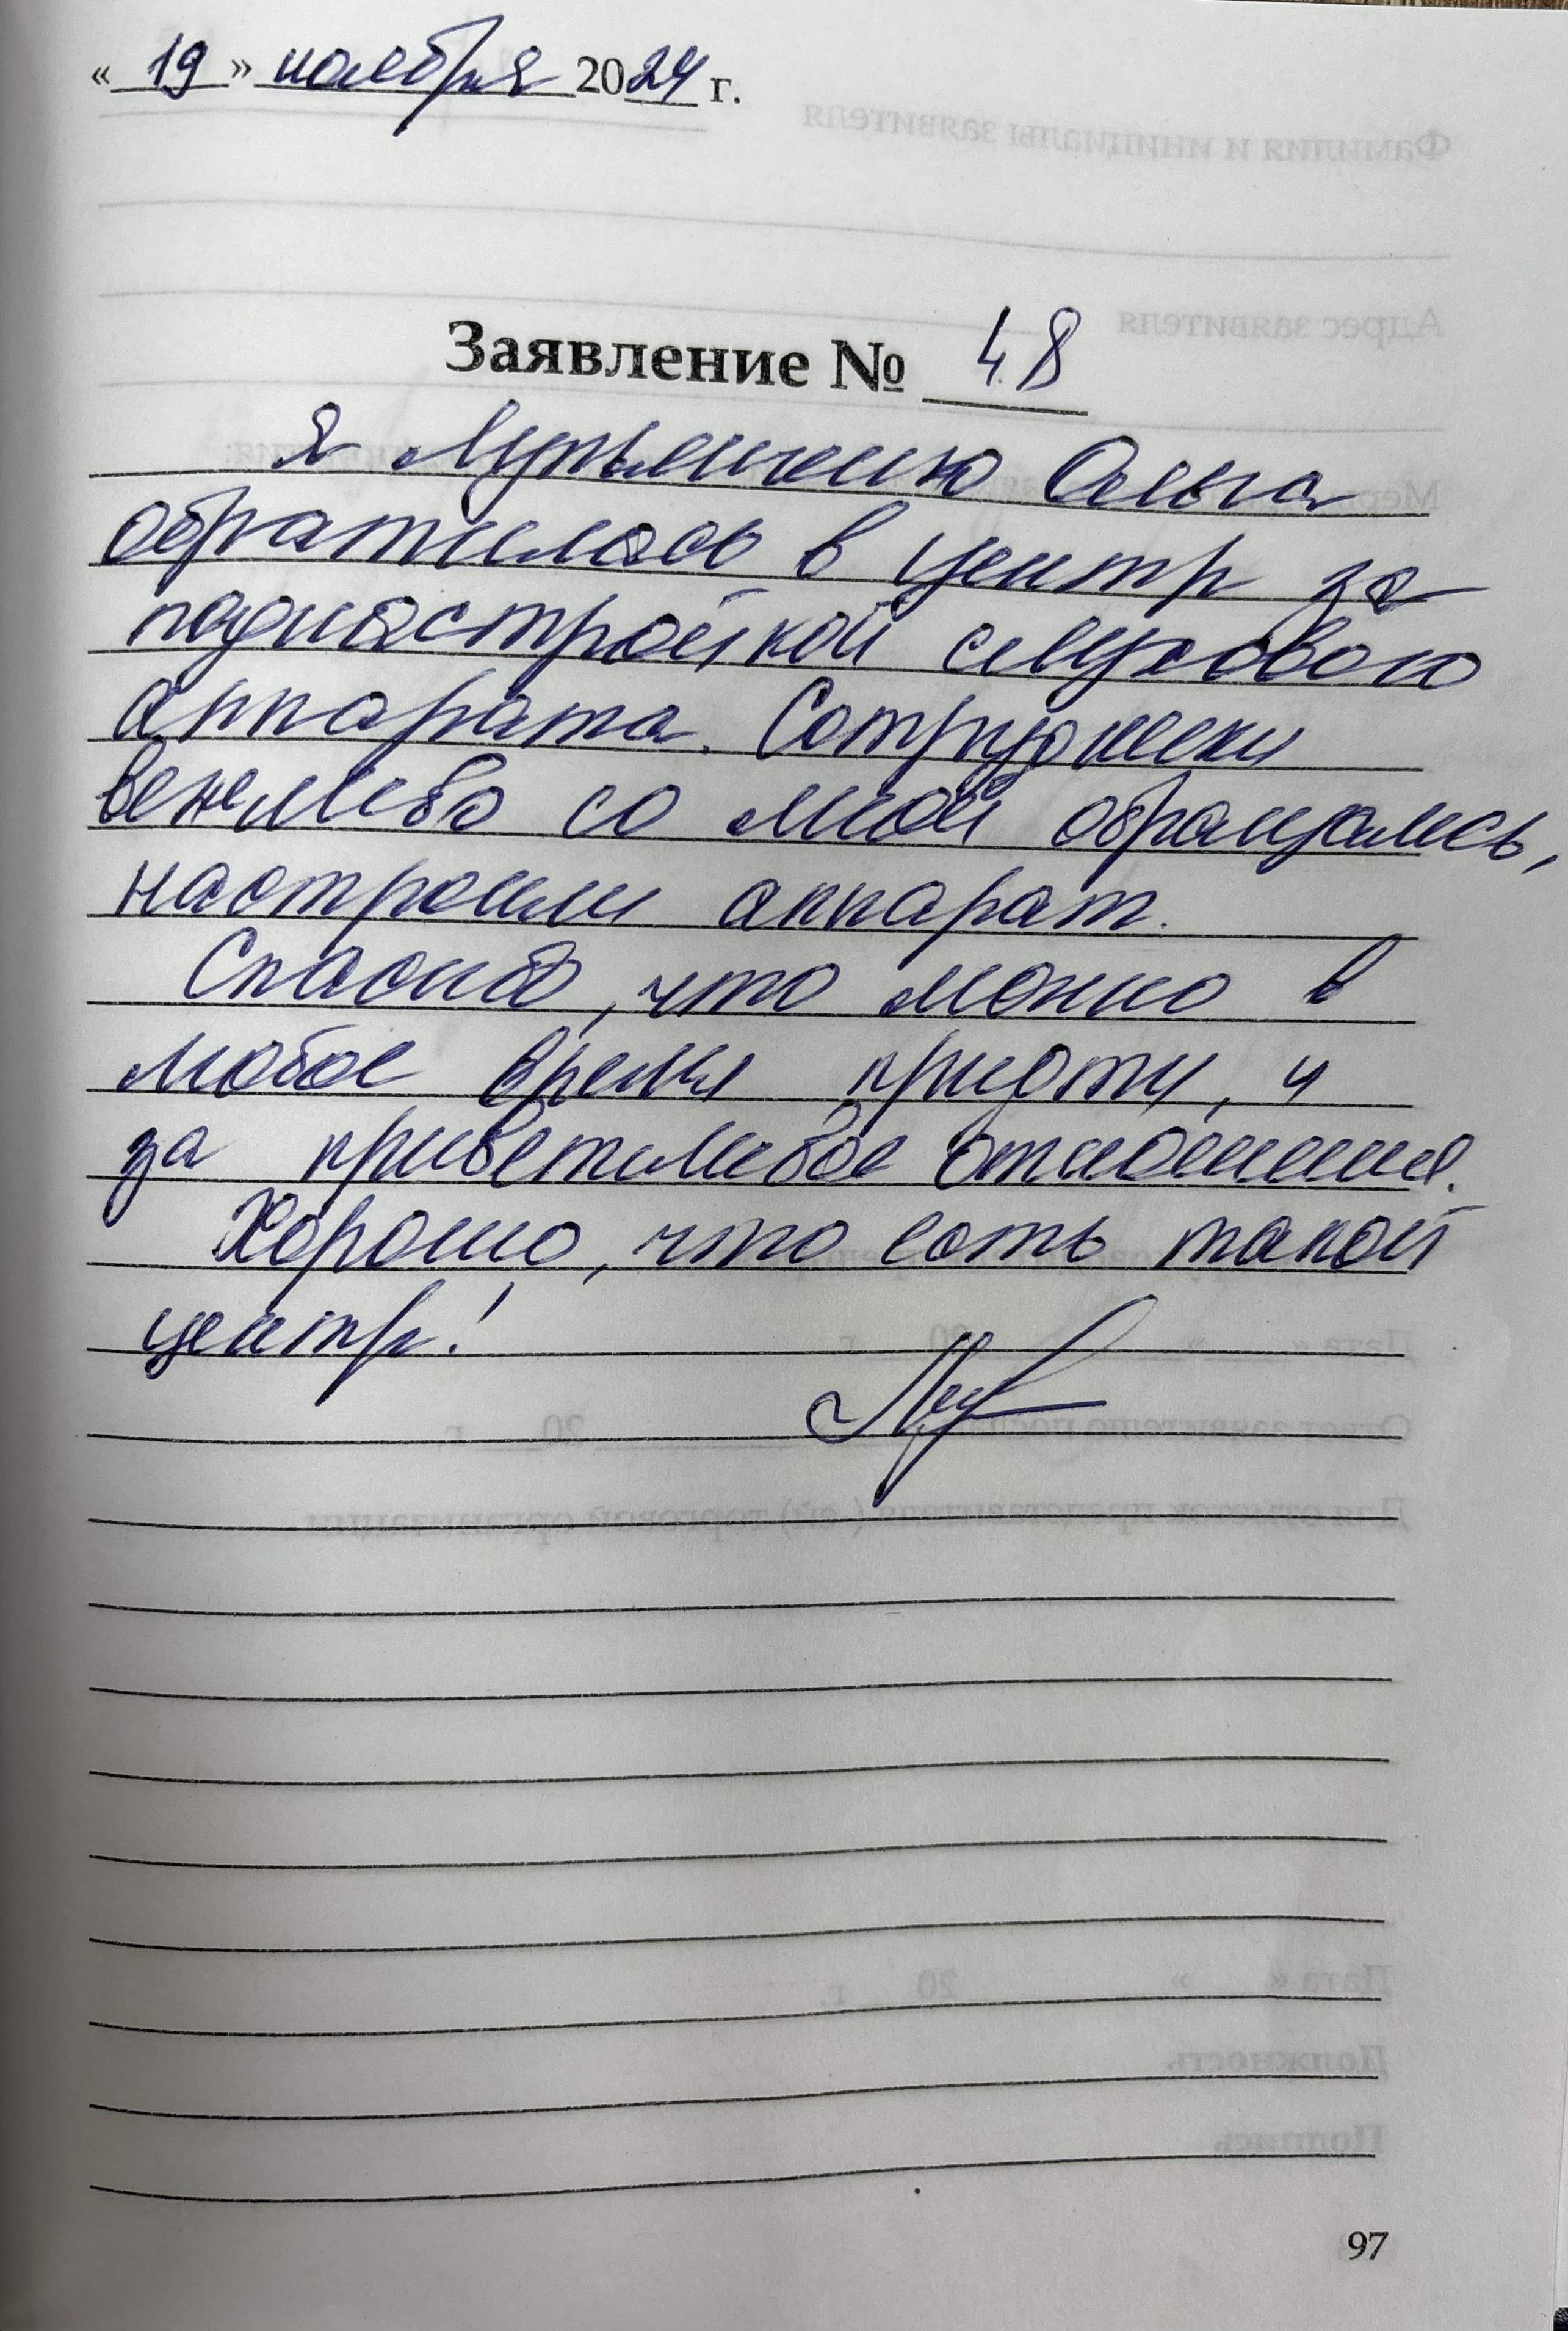 « 19 » ноября 2024 г.
Заявление № 48
Я Анна
обратилась в центр за
поднастройкой слухового
аппарата. Сотрудники
вежливо со мной обращались,
настроили аппарат.
Спасибо, что можно в
любое время придти, и
за приветливое отношение.
Хорошо, что есть такой
центр!
97